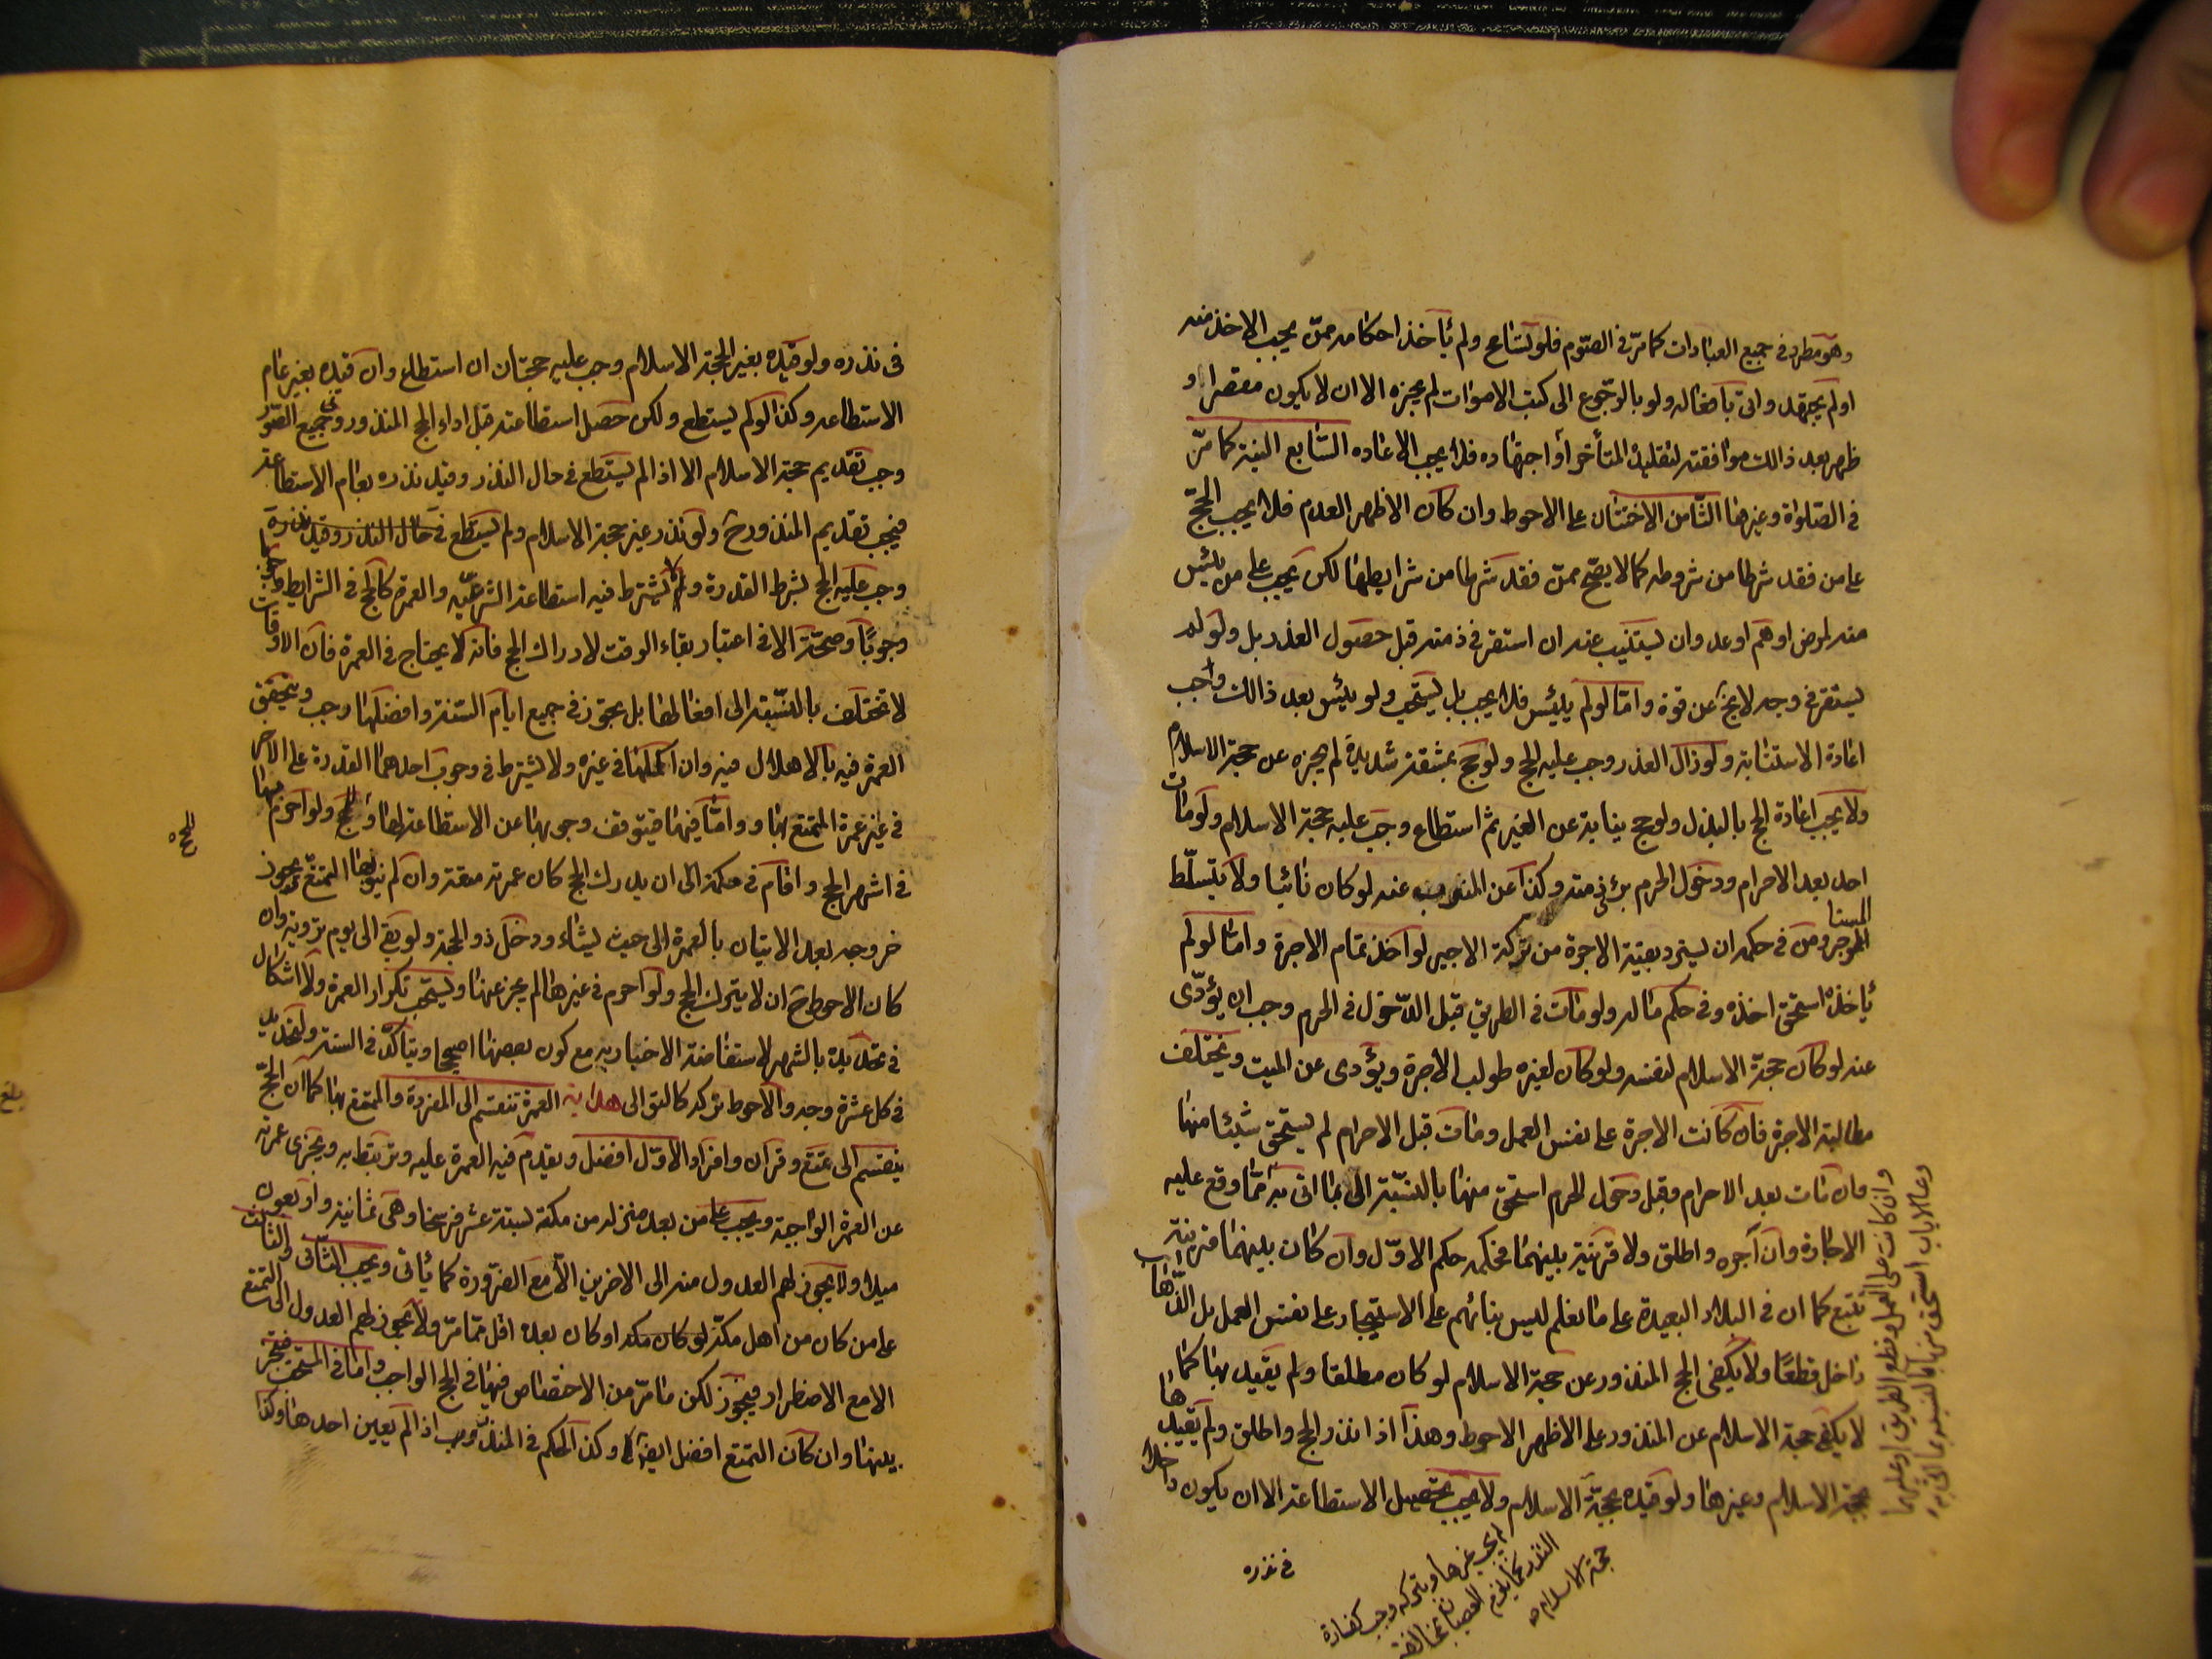 وهو مطرد في جميع العبادات كما مرّ في الصّوم فلو تسامح ولم يأخذ احكامه ممن يجب الاخذ منه
او لم يجتهد واتى بافعاله ولو بالرّجوع الى كتب الاموات لم يجزه الا ان لا يكون مقصرا او
ظهر بعد ذالك موافقته لتقليده المتأخر أو اجتهاده فلا يجب الاعاده السّابع النية كما مرّ
في الصّلواة وغيرها الثّامن الاختتان على الاحوط وان كان الاظهر العدم فلا يجب الحجّ
على من فقد شرطا من شروطه كما لا يصحّ ممن فقد شرطا من شرايطها لكن يجب على من يئس
منه لمرض او هرم او عدو ان يستنيب عنه ان استقر في ذمته قبل حصول العذر بل ولو لم
يستقر في وجه لا يخ عن قوة وامّا لو لم يئس فلا يجب بل يستحب ولو يئس بعد ذالك وجب
اعادة الاستنابة ولو زال العذر وجب عليه الحج ولو حج بمشقة شديدة لم يجزه عن حجة الاسلام
ولا يجب اعادة الحج بالبذل ولو حج بنيابة عن الغير ثم استطاع وجب عليه حجة الاسلام ولو مات
احد بعد الاحرام ودخول الحرم برئ ذمته وكذا عن المنوب عنه لو كان نائبا ولا يتسلّط
المستا
الموجر ومن في حكمه ان يسترد بقية الاجرة من تركة الاجير لو اخذ تمام الاجرة وامّا لو لم
يأخذه استحق اخذه وفي حكم ماله ولو مات في الطريق قبل الدّخول في الحرم وجب ان يؤدّى
عنه لو كان حجة الاسلام لنفسه ولو كان لغيره طولب الاجرة ويؤدى عن الميت ويختلف
مطالبة الاجرة فان كانت الاجرة على نفس العمل ومات قبل الاحرام لم يستحق شيئا منها
وان مات بعد الاحرام وقبل دخول الحرم استحق منها بالنسبة الى ما اتى به ممّا وقع عليه
الاجارة وان آجره واطلق ولا قرينة بينهما فحكمه حكم الاوّل وان كان بينهما قرينة
تتبع كما ان في البلاد البعيدة على ما نعلم ليس بنائهم على الاستيجار على نفس العمل بل الذّهاب
داخل قطعًا ولا يكفى الحج المنذور عن حجة الاسلام لو كان مطلقا ولم يقيد بها كما
لا يكفي حجة الاسلام عن المنذور على الاظهر الاحوط وهذا اذا نذر الحج واطلق ولم يقيدها
بحجة الاسلام وغيرها ولو قيده بحجّة الاسلام ولا يجب تحصيل الاستطاعة الا ان يكون داخلا
في نذره
وان كانت على العمل وقطع الطريق او عليهما
وعلى الاياب استحق منها بالنسبة بما اتى به
غيرها وبتركه وجب كفارة
النذر كما يلزم العصيان بمخالفة
حجة الاسلام
في نذره ولو قيّده بغير الحجة الاسلام وجب عليه حجتان ان استطاع وان قيده بغير عام
الاستطاعه وكذا لو لم يستطع ولكن حصل استطاعته قبل اداء الحج المنذور وفي جميع الصّور
وجب تقديم حجة الاسلام الا اذا لم يستطع في حال النذر وقيد نذره بعام الاستطاعة
فيجب تقديم المنذور ح ولو نذر غير حجة الاسلام ولم يستطع في حال النذر وقيد نذره
وجب عليه الحج بشرط القدرة ولا يشترط فيه استطاعة الشرعيّة والعمرة كالحج في الشرايط
وجوبًا وصحة الا في اعتبار بقاء الوقت لادراك الحج فانه لا يحتاج في العمرة فان الاوقات
لا تختلف بالنسبة الى افعالها بل تجوز في جميع ايام السّنة وافضلها رجب ويتحقق
العمرة فيه بالاهلال فيه وان اكملها في غيره ولا يشترط في وجوب احدهما القدرة على الاخر
في غير عمرة المتمتع بها وامّا فيها فيتوقف وجوبها عن الاستطاعة لها وللحج ولو احرم بها
في اشهر الحج واقام في مكة الى ان يدرك الحج كان عمرته متعة وان لم ينو بها التمتع نعم يجوز
خروجه بعد الاتيان بالعمرة الى حيث يشاء ودخل ذو الحجة ولو بقي الى يوم تروية وان
كان الاحوط ح ان لا يترك الحج ولو احرم في غيرها لم يجز عنها ويستحب تكرار العمرة ولا اشكال
في تحديده بالشهر لاستفاضة الاخبار به مع كون بعضها صحيحا ويتاكّد في السنة وتحديد
في كل عشرة وجه والاحوط تركه كالتوالى هداية العمرة تنقسم الى المفردة والمتمتع بها كما ان الحجّ
ينقسم الى تمتع وقران وافراد والاوّل افضل ويقدم فيه العمرة عليه وترتبط به ويجزى عمرته
عن العمرة الواجبة ويجب على من بعد منزله من مكة بستة عشر فرسخا وهى ثمانية واربعون
ميلا ولا يجوز لهم العدول منه الى الاخرين الّا مع الضّرورة كما يأتى ويجب الثّانى والثالث
على من كان من اهل مكة لو كان مكه او كان بعده اقل ممّا مرّ ولا يجوز لهم العدول الى التمتع
الا مع الاضطرار فيجوز لكن ما مرّ من الاختصاص فيها في الحج الواجب وامّا في المستحب فتخير
بينها وان كان التمتع افضل ايضا وكذا الحكم في المنذور اذا لم يعين احدها وكذا
للحج